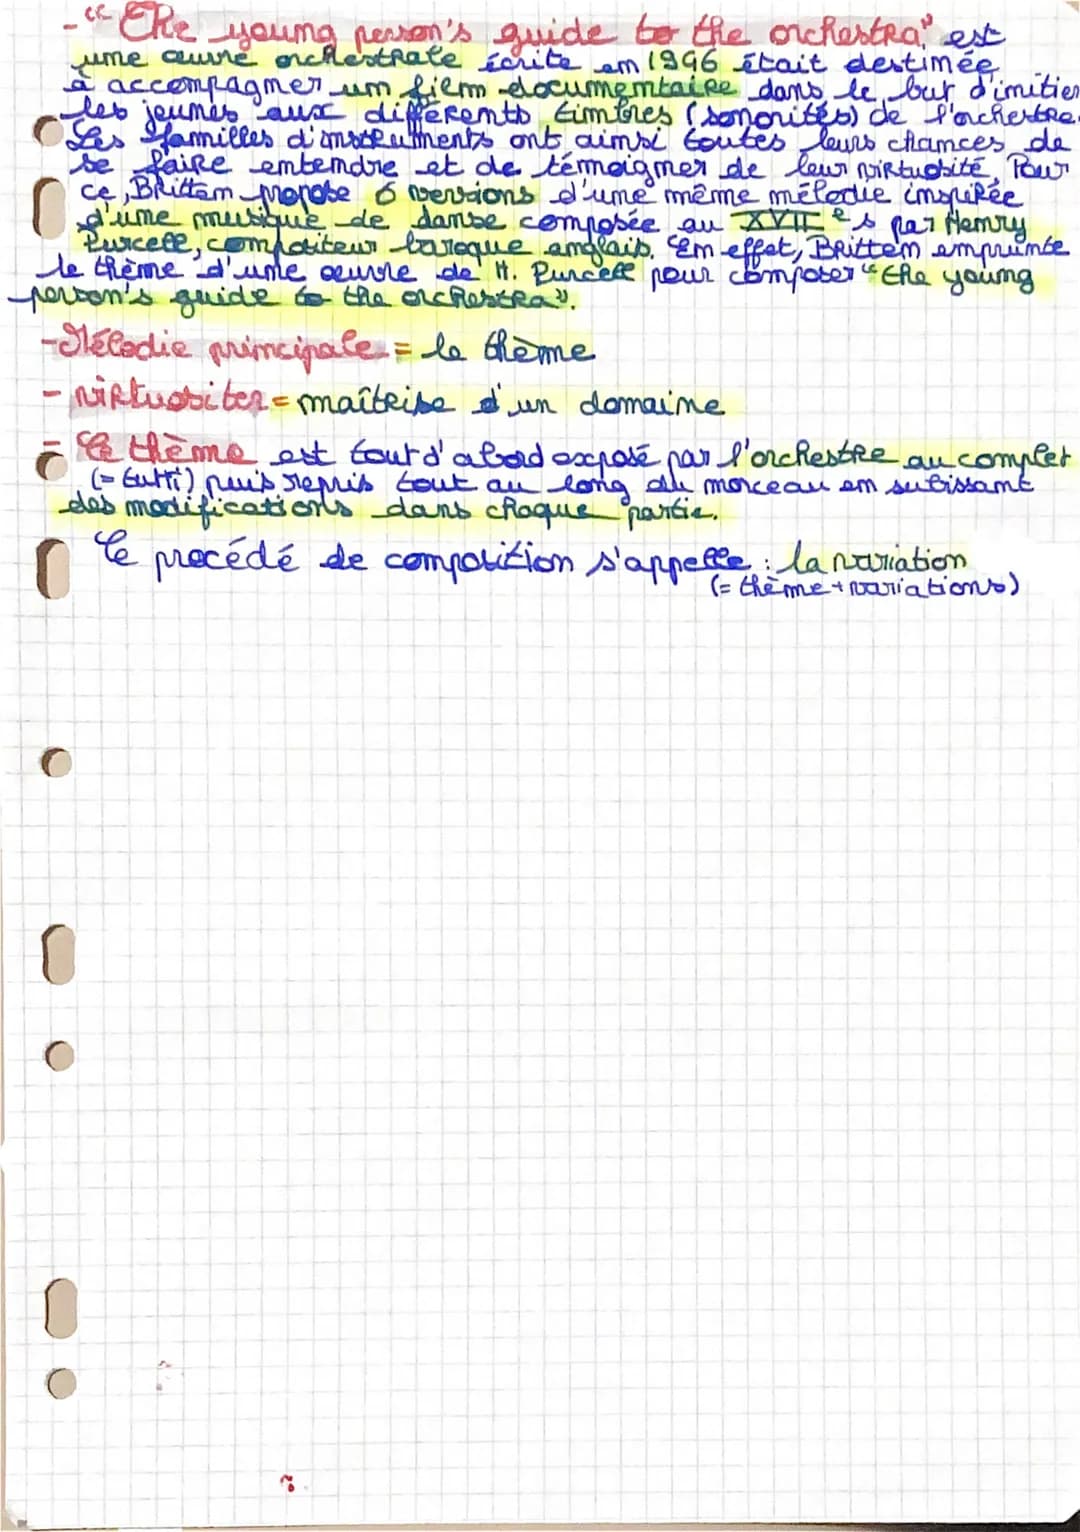 - "The young person's guide to the orchestra" est
une œuvre orchestrale écrite en 1946 était destinée
à accompagner un film documentaire dans le but d'initier
les jeunes aux différents timbres (sonorités) de l'orchestre.
Les familles d'instruments ont ainsi toutes leurs chances de
se faire entendre et de témoigner de leur virtuosité, Pour
ce, Britten propose 6 versions d'une même mélodie inspirée
d'une musique de danse composée au XVII e s par Henry
Purcell, compositeur baroque anglais. En effet, Britten emprunte
le thème d'une œuvre de H. Purcell pour composer "the young
person's guide to the orchestra".
- Mélodie principale = le thème
- virtuositer = maîtrise d'un domaine
- Le thème est tout d'abord exposé par l'orchestre au complet
(= tutti) puis repris tout au long du morceau en subissant
des modifications dans chaque partie.
Le procédé de composition s'appelle : la variation
(= thème + variations)